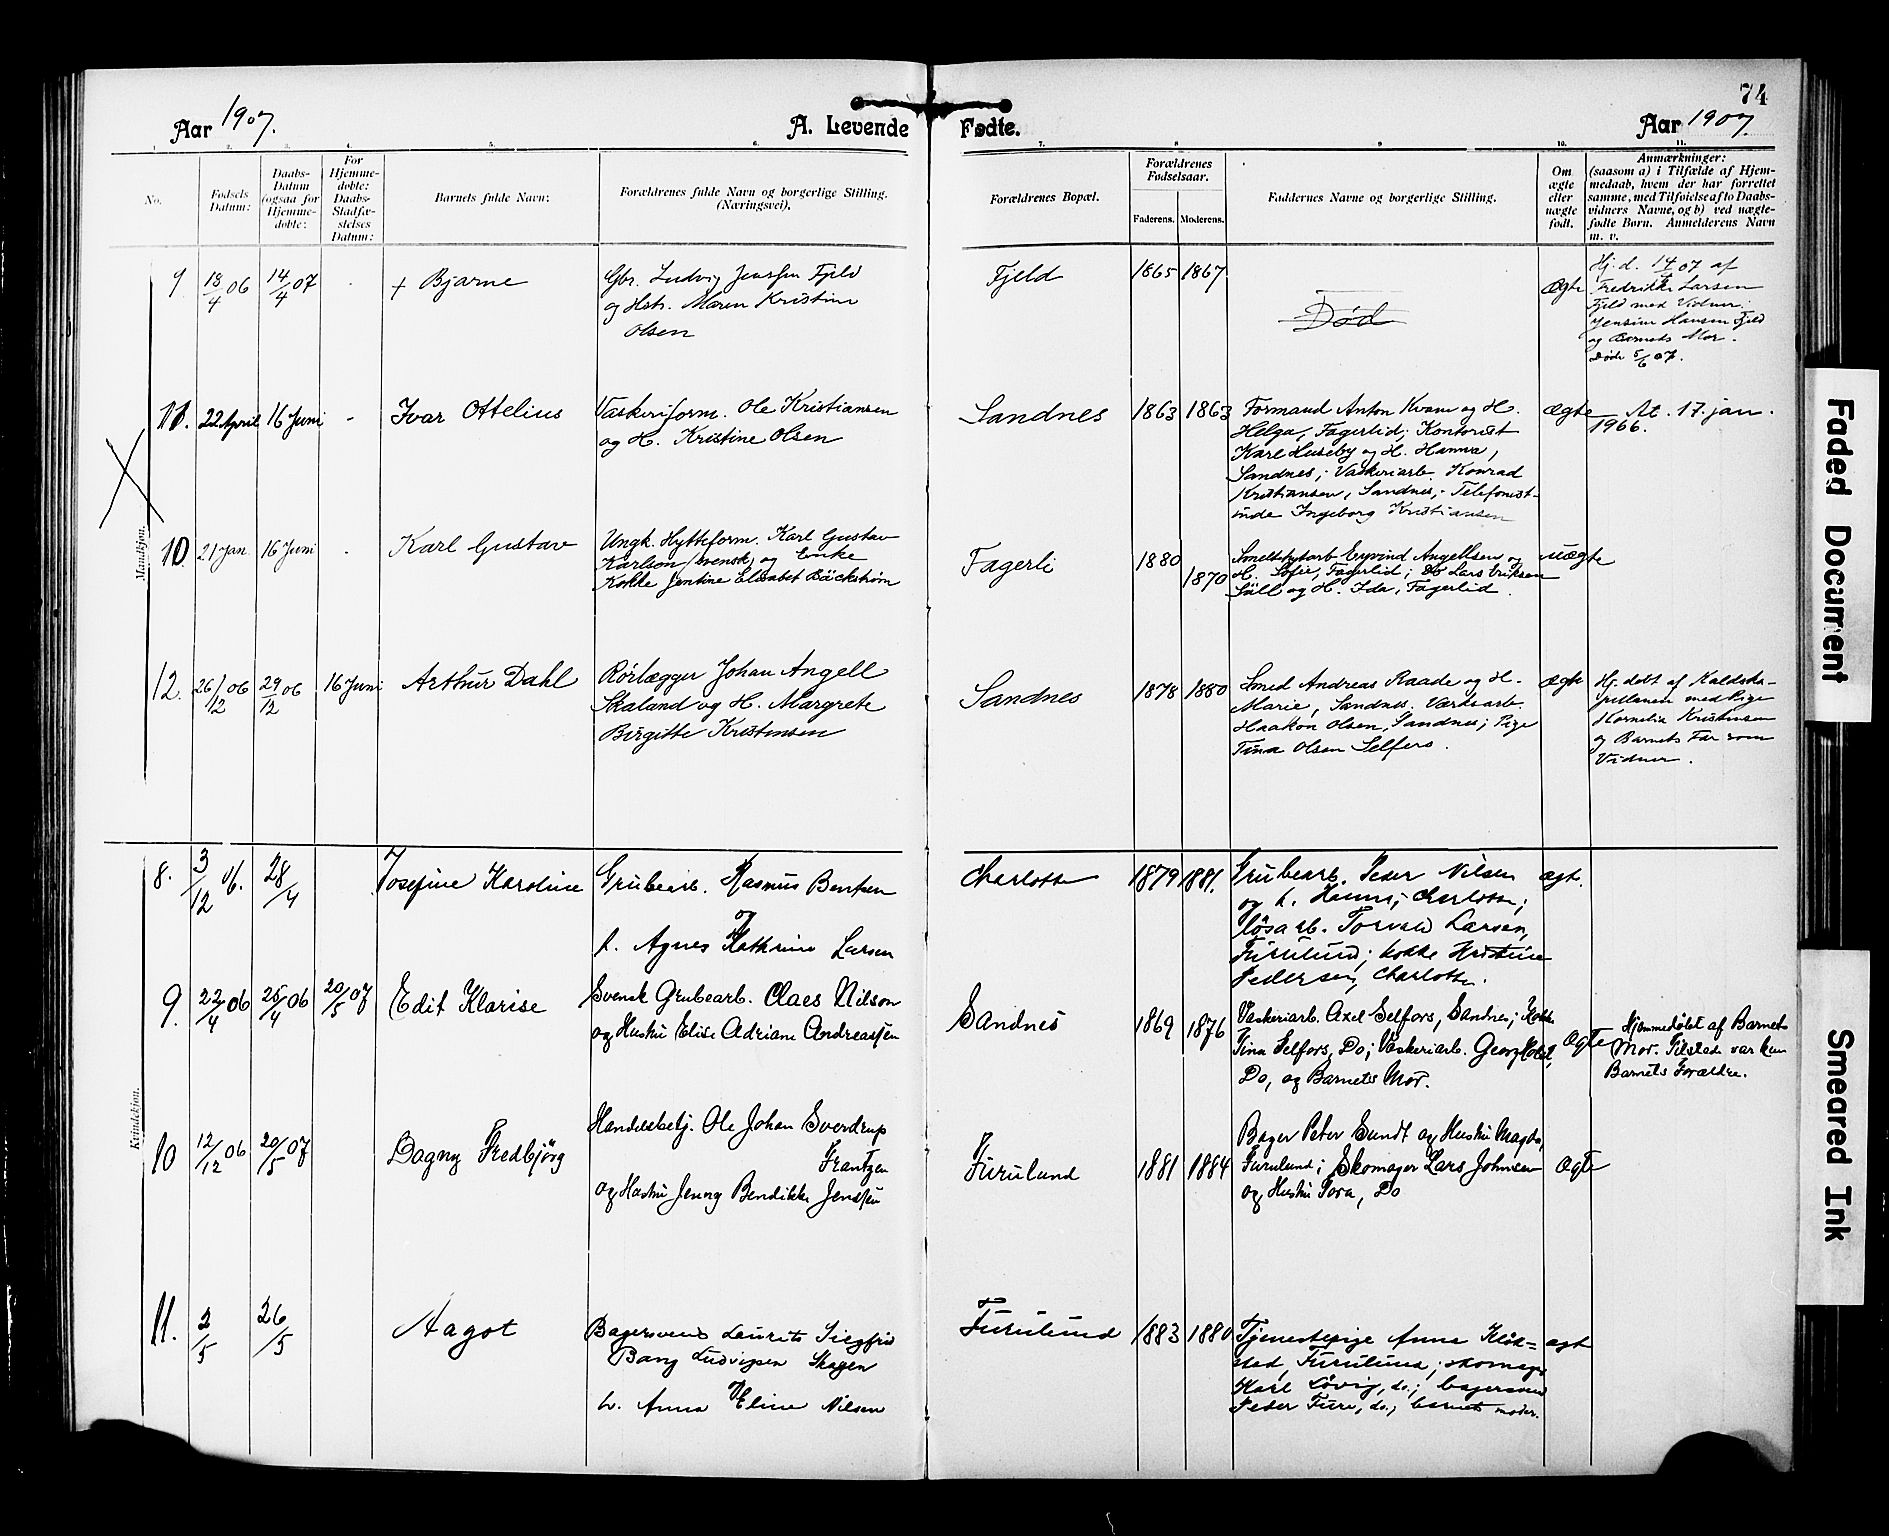 74
Aar 1907.
A. Levende Fødte.
Aar 1907
1. 2. 3. 4. 5. 6. 7. 8 9 10. 11.
No.
Fødsels Datum:
Daabs-Datum (ogsaa for Hjemme-døbte:
For Hjemme-døbte: Daabs-Stadfæ-stelses Datum:
Barnets fulde Navn:
Forældrenes fulde Navn og borgerlige Stilling. (Næringsvei).
Forældrenes Bopæl.
Forældrenes Fødselsaar.
Faderens. Moderens.
Faddernes Navne og borgerlige Stilling.
Om ægte eller uægte født.
Anmærkninger:
(saasom a) i Tilfælde af Hjem-
medaab, hvem der har forrettet
samme, med Tilføielse af to Daabs-
vidners Navne, og b) ved uægte-
fødte Børn. Anmelderens Navn
m. v.
Mandkjøn.
9 18/4 06 14/4 07 - + Bjarne
Gbr. Ludvig Jenssen Fjeld
og Hstr. Maren Kristine
Olsen
Fjeld 1865 1867
Død
Ægte
Hj. d. 14/4 07 af
Fredrikke Larsen
Fjeld med Vidner:
Jensine Hansen Fjeld
og Barnets Mor.
Døde 5/6 07.
11. 22 April 16 Juni - Ivar Ottelius
Vaskeriform. Ole Kristiansen
og H. Kristine Olsen
Sandnes 1863 1863
Formand Anton Kvam og H.
Helga, Fagerlid; Kontorist
Karl Huseby og H. Hanna,
Sandnes; Vaskeriarb. Konrad
Kristiansen, Sandnes; Telefonist-
inde Ingeborg Kristiansen
Ægte
At. 17. jan.
1966.
10. 21 Jan. 16 Juni - Karl Gustav
Ungk. Hytteform. Karl Gustav
Karlson (svensk) og Enke
Kokke Jentine Elisabet Bäckström
Fagerli 1880 1870
Smeltehytarb Eyvind Angellsen og
H. Sofie, Fagerlid; Do Lars Eriksen
Säll og H. Ida, Fagerlid.
uægte
12. 26/12 06 29/12 06 16 Juni Arthur Dahl
Rørlægger Johan Angell
Skaland og H. Margrete
Birgitte Kristensen
Sandnes 1878 1880
Smed Andreas Raade og H.
Marie, Sandnes. Værksarb.
Haakon Olsen, Sandnes; Pige
Tina Olsen Selfors.
Ægte
Hj. døbt af Kaldska-
pellanen med Pige
Kornelia Kristensen
og Barnets Far som
Vidner.
Kvindekjøn.
8. 3/12 06. 28/4 Josefine Karoline
Grubearb. Rasmus Bentsen
og
h. Agnes Kathrine Larsen
Charlotta 1879 1881.
Grubearb. Peder Nilsen
og h. Hanna, Charlotta;
løsarb. Torvald Larsen,
Furulund; kokke Kristine
Pedersen, Charlotta.
ægt.
9. 22/4 06 25/4 06 20/5 07 Edit Klarise
Svensk Grubearb. Claes Nilson
og Hustru Elise Adriane Andreassen
Sandnes 1869 1876
Vaskeriarb. Axel Selfors, Sandnes; Kokke
Tina Selfors, Do; Vaskeriarb. Georg Holst,
Do, og Barnets Mor.
Ægte
Hjemmedøbt af Barnets
Mor. Tilstede var kun
Barnets Forældre.
10 12/12 06 20/5 07 Dagny Fredbjørg
Handelsbetj. Ole Johan Sverdrup
Frantzen
og Hustru Jenny Bendikke Jenssen
Furulund 1881 1884
Bager Peter Sundt og Hustru Magda,
Furulund; Skomager Lars Johnsen
og Hustru Tora, Do
Ægte
11. 2/5 26/5 Aagot
Bagersvend Laurits Siegfrid
Bang Ludvigsen Skagen
og
h. Anna Eline Nilsen
Furulund 1883 1880
Tjenestepige Anna Klok=
stad, Furulund; skomager
Karl Løvig, do.; bagersvend
Peder Fure, do., barnets moder.
ægt
Faded Document
Smeared Ink